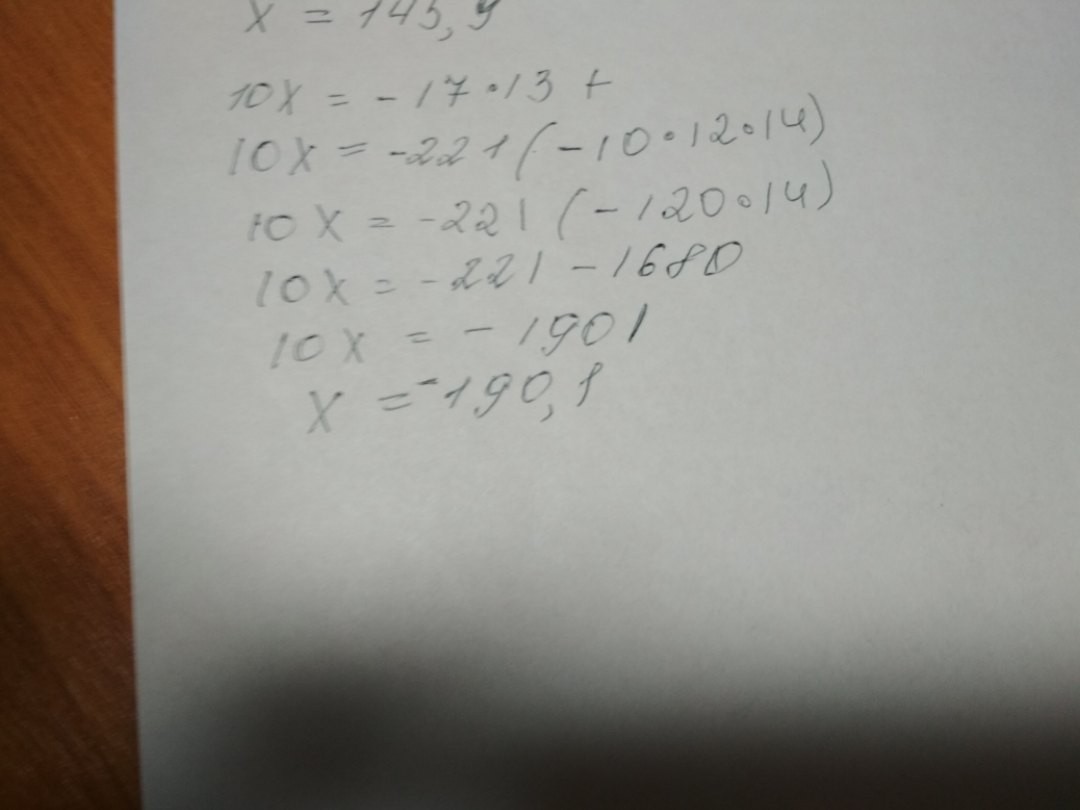 x = 145,9
10x = - 17 • 13 +
10x = -221 (-10 • 12 • 14)
10x = -221 (-120 • 14)
10x = -221 - 1680
10x = - 1901
x = -190,1